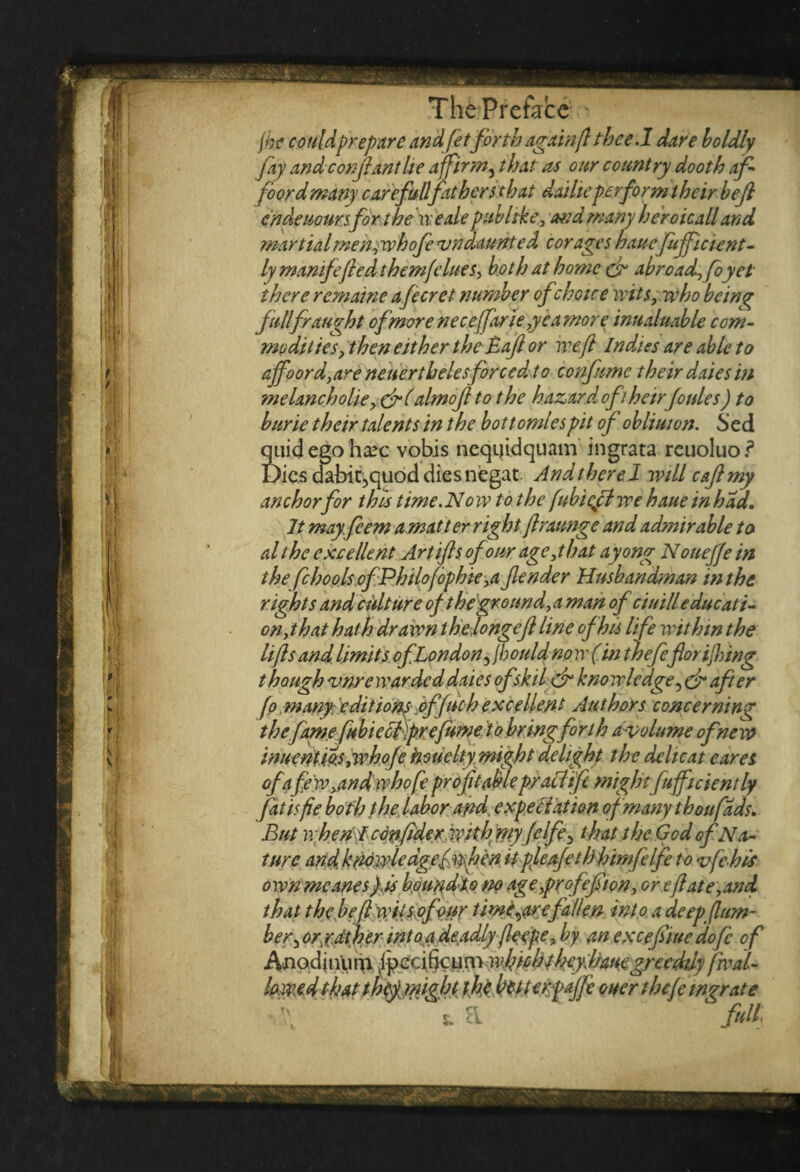 The Preface
she could prepare and set forth against thee. I dare boldly
say and constantlie affirm, that as our country dooth af-
foord many carefull fathers that dailie perform their best
endeuours for the weale publike, and many heroicall and
martial men, whose vndaunted corages haue sufficient-
ly manifested themselues, both at home & abroad, so yet
there remaine a secret number of choice wits, who being
full fraught of more necessarie, yea more inualuable com-
modities, then either the East or West Indies are able to
affoord, are neuerthelesforced to consume their daies in
melancholie, & (almost to the hazard of their soules) to
burie their talents in the bottomles pit of obliuion. Sed
quid ego hæc vobis nequidquam ingrata reuoluo?
Dies dabit, quod dies negat. And there I will cast my
anchor for this time. Now to the subiect we haue in had.
It may seem a matter right straunge and admirable to
al the excellent Artists of our age, that a yong Nouesse in
the schools of Philosophie, a slender Husbandman in the
rights and culture of the ground, a man of ciuill educati-
on, that hath drawn the longest line of his life within the
lists and limits of London, should now (in these florishing
though vnrewarded daies of skil & knowledge, & after
so many editions of such excellent Authors concerning
the same subiect) presume to bring forth a volume of new
inuentiōs, whose nouelty might delight the delicat eares
of a few, and whose profitable practise might sufficiently
satisfie both the labor and expectation of many thousāds.
But when I consider with my selfe, that the God of Na-
ture and knowledge (when it pleaseth himselfe to vse his
own meanes) is bound to no age, profession, or estate, and
that the best wits of our time, are fallen into a deep slum-
ber, or rather into a deadly sleepe, by an excessiue dose of
Anodinum specificum which they haue greedily swal-
lowed that they might the better passe ouer these ingrate
full